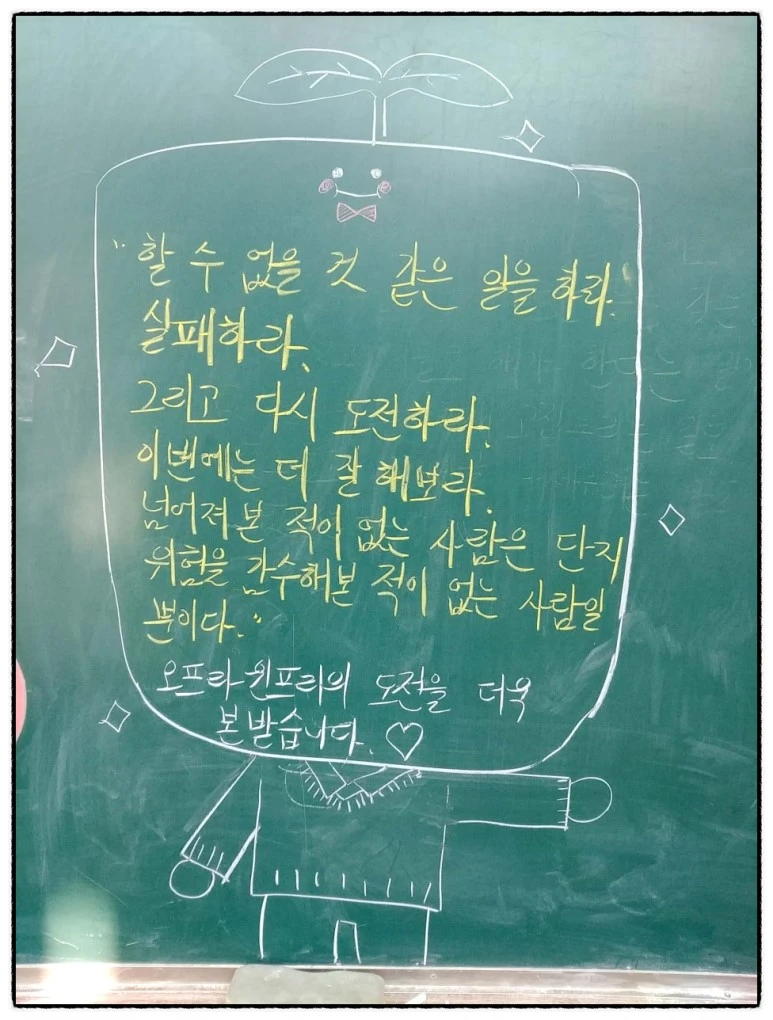 "할 수 없을 것 같은 일을 하라.
실패하라.
그리고 다시 도전하라.
이번에는 더 잘 해보라.
넘어져 본 적이 없는 사람은 단지
위험을 감수해본 적이 없는 사람일
뿐이다."
오프라 윈프리의 도전을 더욱
본받습니다. ♡